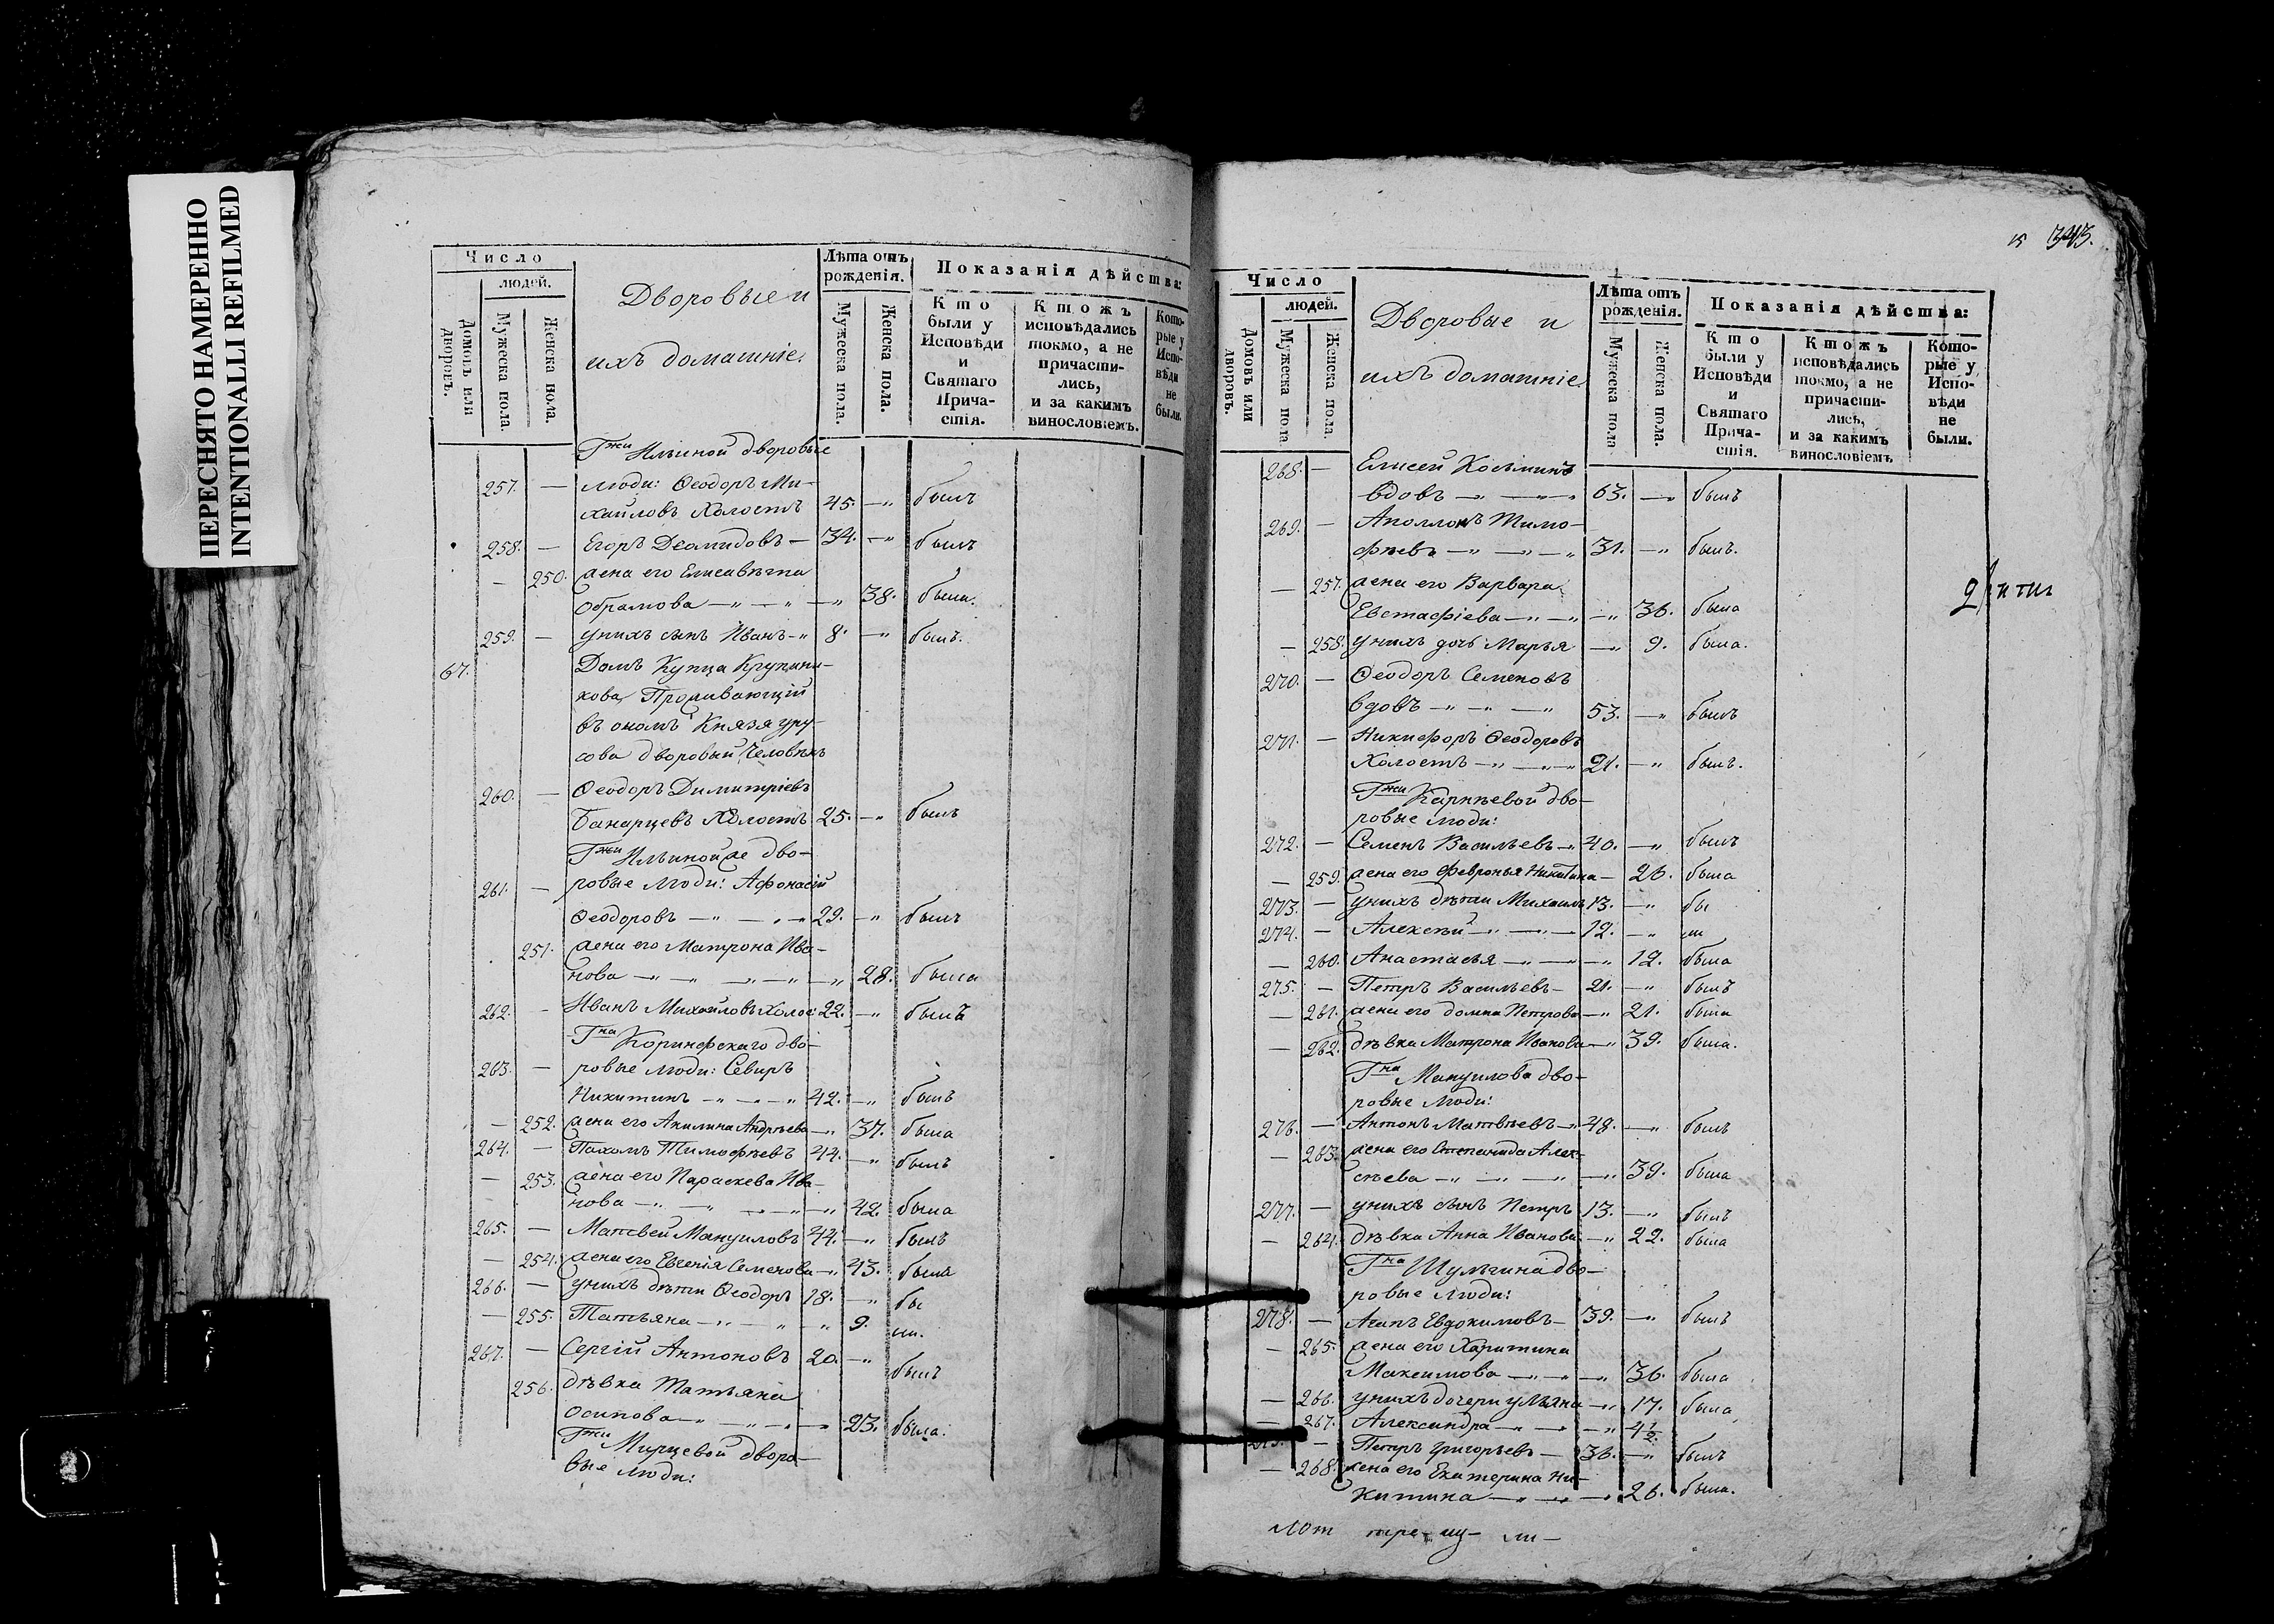 ПЕРЕСНЯТО НАМЕРЕННО
INTENTIONALLI REFILMED
Число
людей.
Домовъ или дворовъ.
Мужеска пола.
Женска пола.
Дворовые и
ихъ домашніе.
Лѣта отъ рожденія.
Мужеска пола.
Женска пола.
Показанія дѣйства:
Кто были у Исповѣди и Святаго Прича-стія.
Ктожъ исповѣдались токмо, а не причасти-лись, и за какимъ винословіемъ.
Кото-рые у Испо-вѣди не были.
Гжи Ильиной дворовые
257. — люди: Ѳеодоръ Ми-
хайловъ Холостъ 45. —„ былъ
258. — Егоръ Деомидовъ — 34. —„ былъ
— 250. жена его Елисавѣта
Обрамова —„ —„ —„ 38. была.
259. — у нихъ сынъ Иванъ —„ 8. —„ былъ.
67. Домъ Купца Крупени-
кова, Проживающій
въ ономъ Князя Уру-
сова дворовый Человѣкъ
260. — Ѳеодоръ Димитріевъ
Холостъ 25. —„ былъ
Гжи Ильиной же дво-
261. — ровые люди: Афонасій
Ѳеодоровъ —„ —„ —„ 29. —„ былъ
251. жена его Матрона Ива-
нова —„ —„ —„ —„ —„ 28. была
262. — Иванъ Михайловъ Холос: 22. —„ былъ
Гна Коринфскаго дво-
263. — ровые люди: Севиръ
Никитинъ —„ —„ —„ 42. —„ былъ
— 252. жена его Акилина Андрѣева —„ 37. была
264. — Пахомъ Тимофѣевъ 44. —„ былъ
— 253. жена его Параскева Ива-
нова —„ —„ —„ —„ —„ 42. была
265. — Матвей Мануиловъ 44. —„ былъ
— 254. жена его Евгенія Семенова —„ 43. была
266. — у нихъ дѣти Ѳеодоръ 18. —„ бы
— 255. Татьяна —„ —„ —„ 9. ли.
267. — Сергій Антоновъ 20. —„ былъ
256. дѣвка Татьяна
Осипова —„ —„ —„ —„ 23. была.
Гжи Мирцевой дворо-
вые люди:
15 343.
Число
людей.
Домовъ или дворовъ.
Мужеска пола
Женска пола.
Дворовые и
ихъ домашніе.
Лѣта отъ рожденія.
Мужеска пола
Женска пола.
Показанія дѣйства:
Кто были у Исповѣди и Святаго Прича-стія.
Ктожъ исповѣдались токмо, а не причасти-лись, и за какимъ винословіемъ
Кото-рые у Испо-вѣди не были.
268. — Елисей Козьминъ
вдовъ —„ —„ —„ 63. —„ былъ
269. — Аполлонъ Тимо-
фѣевъ —„ —„ —„ 31. —„ былъ.
— 257. жена его Варвара
Евстафіева —„ —„ —„ 36. была
— 258. у нихъ дочь Марья —„ 9. была.
270. — Ѳеодоръ Семеновъ
вдовъ —„ —„ —„ 53. —„ былъ
271. — Никифоръ Ѳеодоровъ
Холостъ —„ —„ —„ 21. —„ былъ.
Гжи Карнѣевой дво-
ровые люди:
272. — Семенъ Васильевъ —„ 40. —„ былъ
— 259. жена его Февронья Никитина — 26. была
273. — у нихъ дѣти Михаилъ 13. —„ бы
274. — Алексѣй —„ —„ — 12. —„ ли
— 260. Анастасья —„ —„ —„ 12. была
275. — Петръ Васильевъ — 21. —„ былъ
— 261. жена его Домна Петрова —„ 21. была
— 262. дѣвка Матрона Иванова —„ 39. была.
Гна Мануилова дво-
ровые люди:
276. — Антонъ Матвѣевъ —„ 48. —„ былъ
— 263. жена его Степанида Алек-
сѣева —„ —„ —„ —„ 39. была
277. — у нихъ сынъ Петръ 13. —„ былъ
— 264. дѣвка Анна Иванова —„ 22. была
Гна Шульгина дво-
ровые люди:
278. — Агапъ Евдокимовъ — 39. —„ былъ
— 265. жена его Харитина
Максимова —„ —„ —„ 36. была
— 266. у нихъ дочери Ульяна —„ 17. была
— 267. Александра —„ —„ —„ 4½.
— Петръ Григорьевъ — 36. —„ былъ
— 268. жена его Екатерина Ни-
китина —„ —„ —„ 26. была.